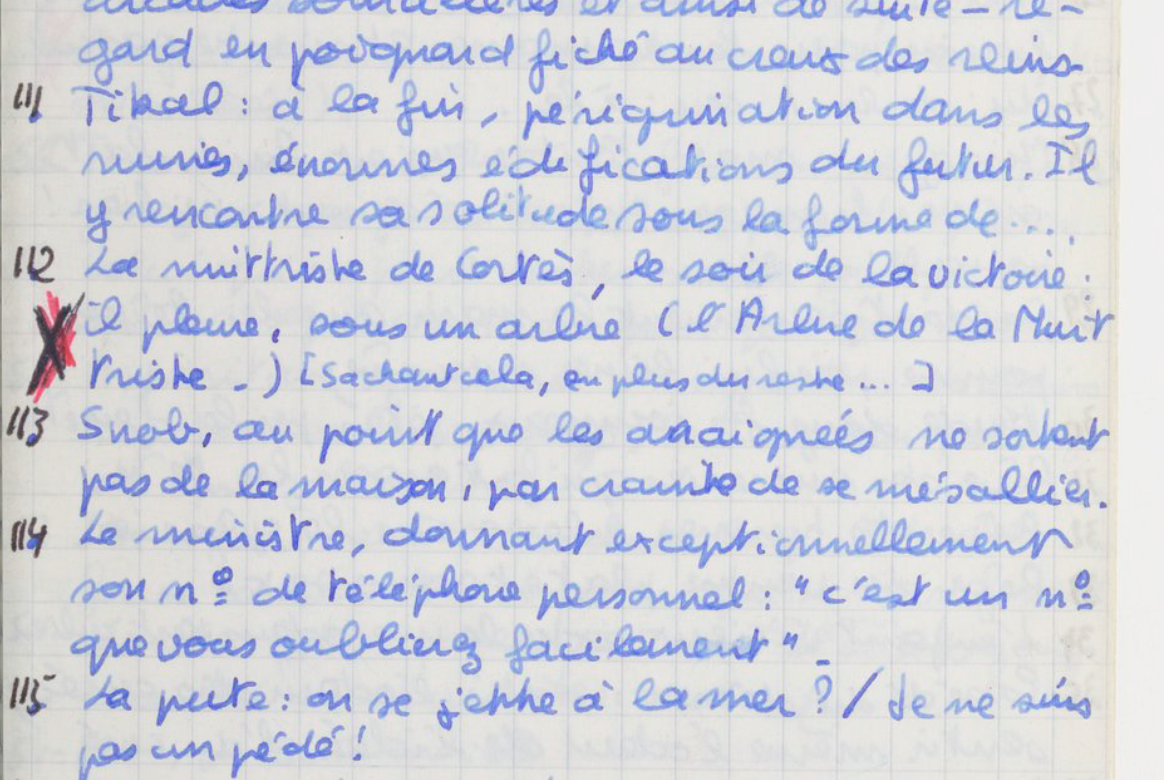 et ainsi de suite - re-
gard en poignard fiché au creux des reins
111 Tikal : à la fin, périgrination dans les
ruines, énormes édifications du futur. Il
y rencontre sa solitude sous la forme de....
112 La nuit triste de Cortès, le soir de la victoire :
il pleure, sous un arbre (l'Arbre de la Nuit
Triste -) [Sachant cela, en plus du reste ... ]
113 Snob, au point que les araignées ne sortent
pas de la maison, par crainte de se mésallier.
114 Le ministre, donnant exceptionnellement
son nº de téléphone personnel : "c'est un nº
que vous oublierez facilement" -
115 La pute : on se jette à la mer ? / Je ne suis
pas un pédé !